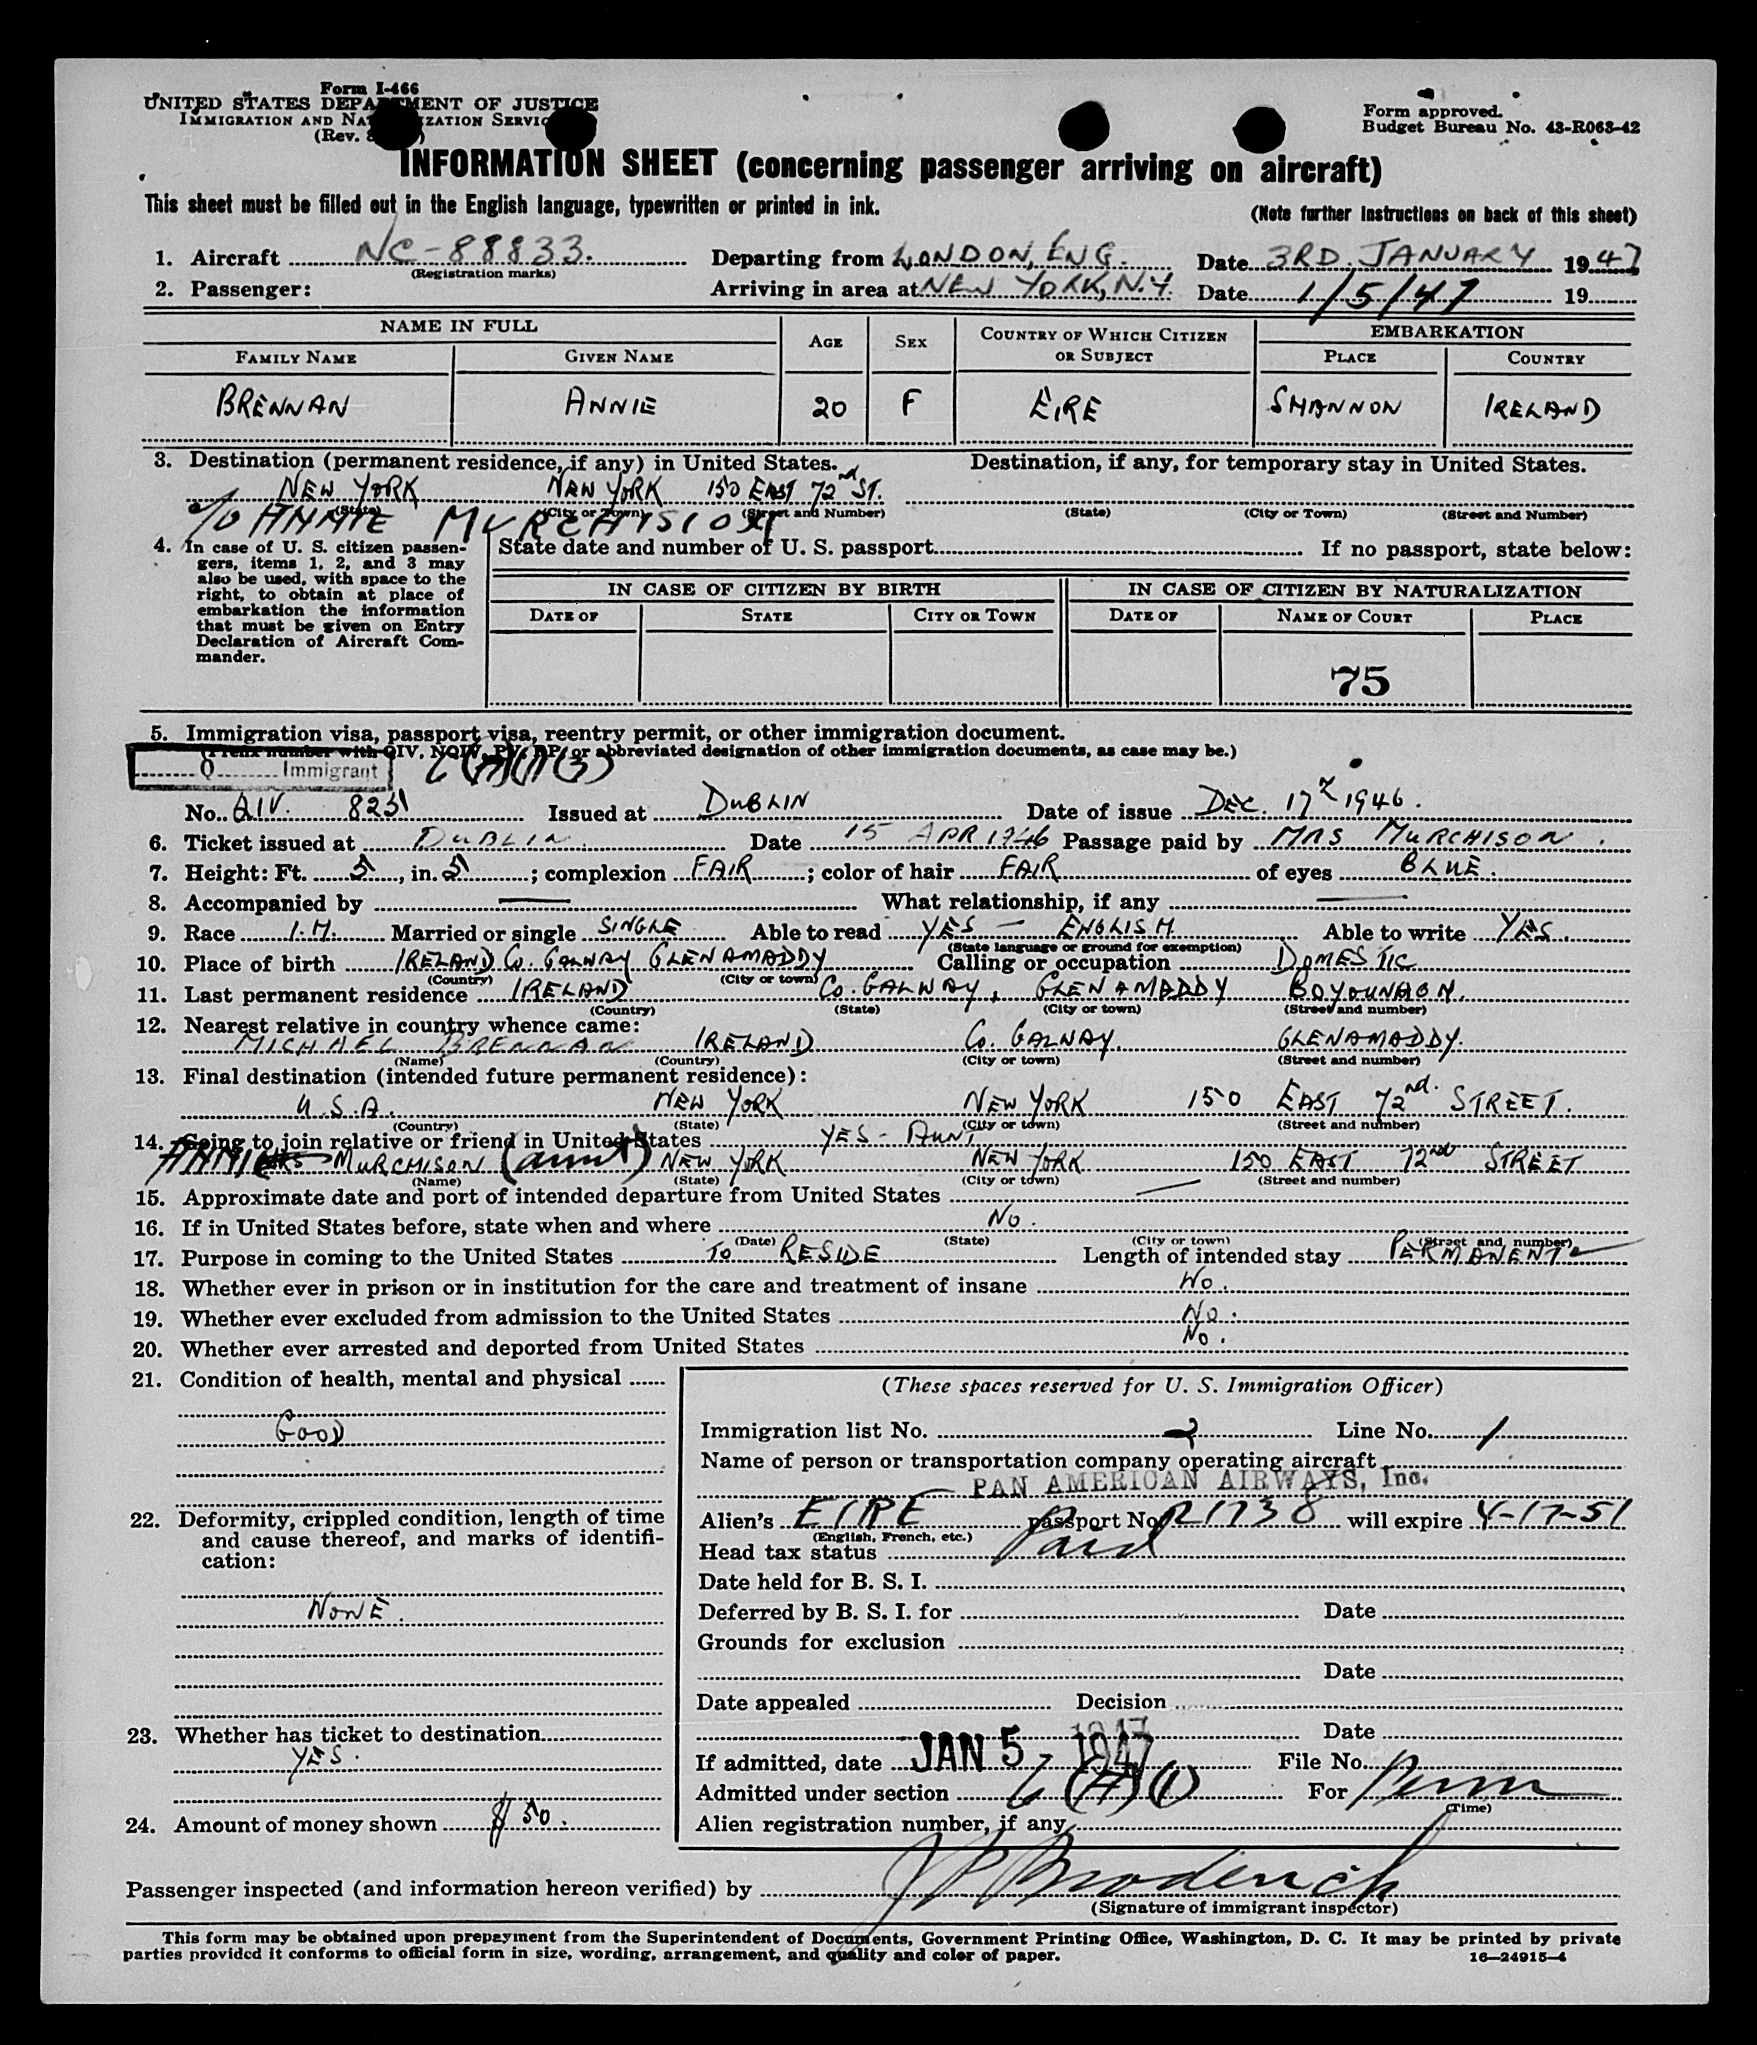 Form I-466
UNITED STATES DEPARTMENT OF JUSTICE
IMMIGRATION AND NATURALIZATION SERVICE
(Rev.
Form approved.
Budget Bureau No. 43-R063-42
INFORMATION SHEET (concerning passenger arriving on aircraft)
This sheet must be filled out in the English language, typewritten or printed in ink.
(Note further instructions on back of this sheet)
1. Aircraft NC-88833. Departing from LONDON, ENG. Date 3RD. JANUARY 1947
(Registration marks)
2. Passenger: Arriving in area at NEW YORK, N.Y. Date 1/5/47 19
NAME IN FULL AGE SEX COUNTRY OF WHICH CITIZEN OR SUBJECT EMBARKATION
FAMILY NAME GIVEN NAME PLACE COUNTRY
BRENNAN ANNIE 20 F EIRE SHANNON IRELAND
3. Destination (permanent residence, if any) in United States. Destination, if any, for temporary stay in United States.
NEW YORK NEW YORK 150 EAST 72nd ST.
(State) (City or Town) (Street and Number) (State) (City or Town) (Street and Number)
c/o ANNIE MURCHISION
4. In case of U. S. citizen passengers, items 1, 2, and 3 may also be used, with space to the right, to obtain at place of embarkation the information that must be given on Entry Declaration of Aircraft Commander.
State date and number of U. S. passport If no passport, state below:
IN CASE OF CITIZEN BY BIRTH IN CASE OF CITIZEN BY NATURALIZATION
DATE OF STATE CITY OR TOWN DATE OF NAME OF COURT PLACE
75
5. Immigration visa, passport visa, reentry permit, or other immigration document.
(Prefix number with QIV, NQIV, PV, RP, or abbreviated designation of other immigration documents, as case may be.)
Q Immigrant
No. QIV. 8251 Issued at DUBLIN Date of issue DEC. 17 1946.
6. Ticket issued at DUBLIN. Date 15 APR 1946 Passage paid by MRS MURCHISON.
7. Height: Ft. 5, in. 5; complexion FAIR; color of hair FAIR of eyes BLUE.
8. Accompanied by — What relationship, if any —
9. Race Married or single SINGLE Able to read YES — ENGLISH Able to write YES.
(State language or ground for exemption)
10. Place of birth IRELAND CO. GALWAY GLENAMADDY Calling or occupation DOMESTIC
(Country) (City or town)
11. Last permanent residence IRELAND CO. GALWAY, GLENAMADDY BOYOUNAGH.
(Country) (State) (City or town) (Street and number)
12. Nearest relative in country whence came:
MICHAEL BRENNAN IRELAND CO. GALWAY. GLENAMADDY.
(Name) (Country) (City or town) (Street and number)
13. Final destination (intended future permanent residence):
U.S.A. NEW YORK NEW YORK 150 EAST 72nd. STREET.
(Country) (State) (City or town) (Street and number)
14. Going to join relative or friend in United States YES - AUNT
ANNIE MURCHISON (aunt) NEW YORK NEW YORK 150 EAST 72nd STREET
(Name) (State) (City or town) (Street and number)
15. Approximate date and port of intended departure from United States —
16. If in United States before, state when and where NO.
(Date) (State) (City or town) (Street and number)
17. Purpose in coming to the United States TO RESIDE Length of intended stay PERMANENT
18. Whether ever in prison or in institution for the care and treatment of insane NO.
19. Whether ever excluded from admission to the United States NO.
20. Whether ever arrested and deported from United States NO.
21. Condition of health, mental and physical
GOOD
22. Deformity, crippled condition, length of time and cause thereof, and marks of identification:
NONE.
23. Whether has ticket to destination
YES.
24. Amount of money shown $50.
(These spaces reserved for U. S. Immigration Officer)
Immigration list No. 2 Line No. 1
Name of person or transportation company operating aircraft
PAN AMERICAN AIRWAYS, Inc.
Alien's EIRE passport No. R1738 will expire 4-17-51
(English, French, etc.)
Head tax status Paid
Date held for B. S. I.
Deferred by B. S. I. for Date
Grounds for exclusion
Date
Date appealed Decision
Date
If admitted, date JAN 5 1947 File No.
Admitted under section 6(A)(1) For Perm
(Time)
Alien registration number, if any
Passenger inspected (and information hereon verified) by J P Broderick
(Signature of immigrant inspector)
This form may be obtained upon prepayment from the Superintendent of Documents, Government Printing Office, Washington, D. C. It may be printed by private
parties provided it conforms to official form in size, wording, arrangement, and quality and color of paper.
16—24915-4